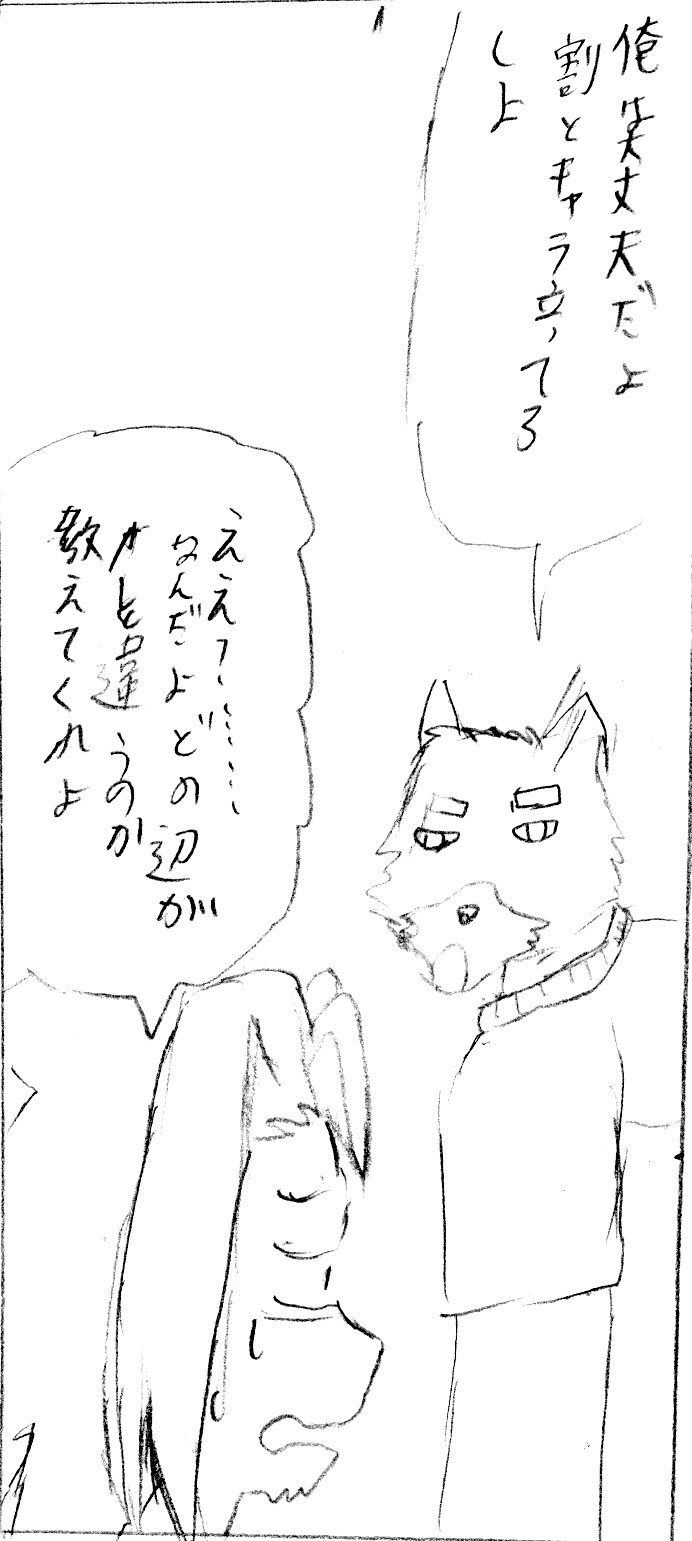 俺は大丈夫だよ
割とキャラ立ってる
しよ
ええー……
なんだよどの辺が
オレと違うのか
教えてくれよ